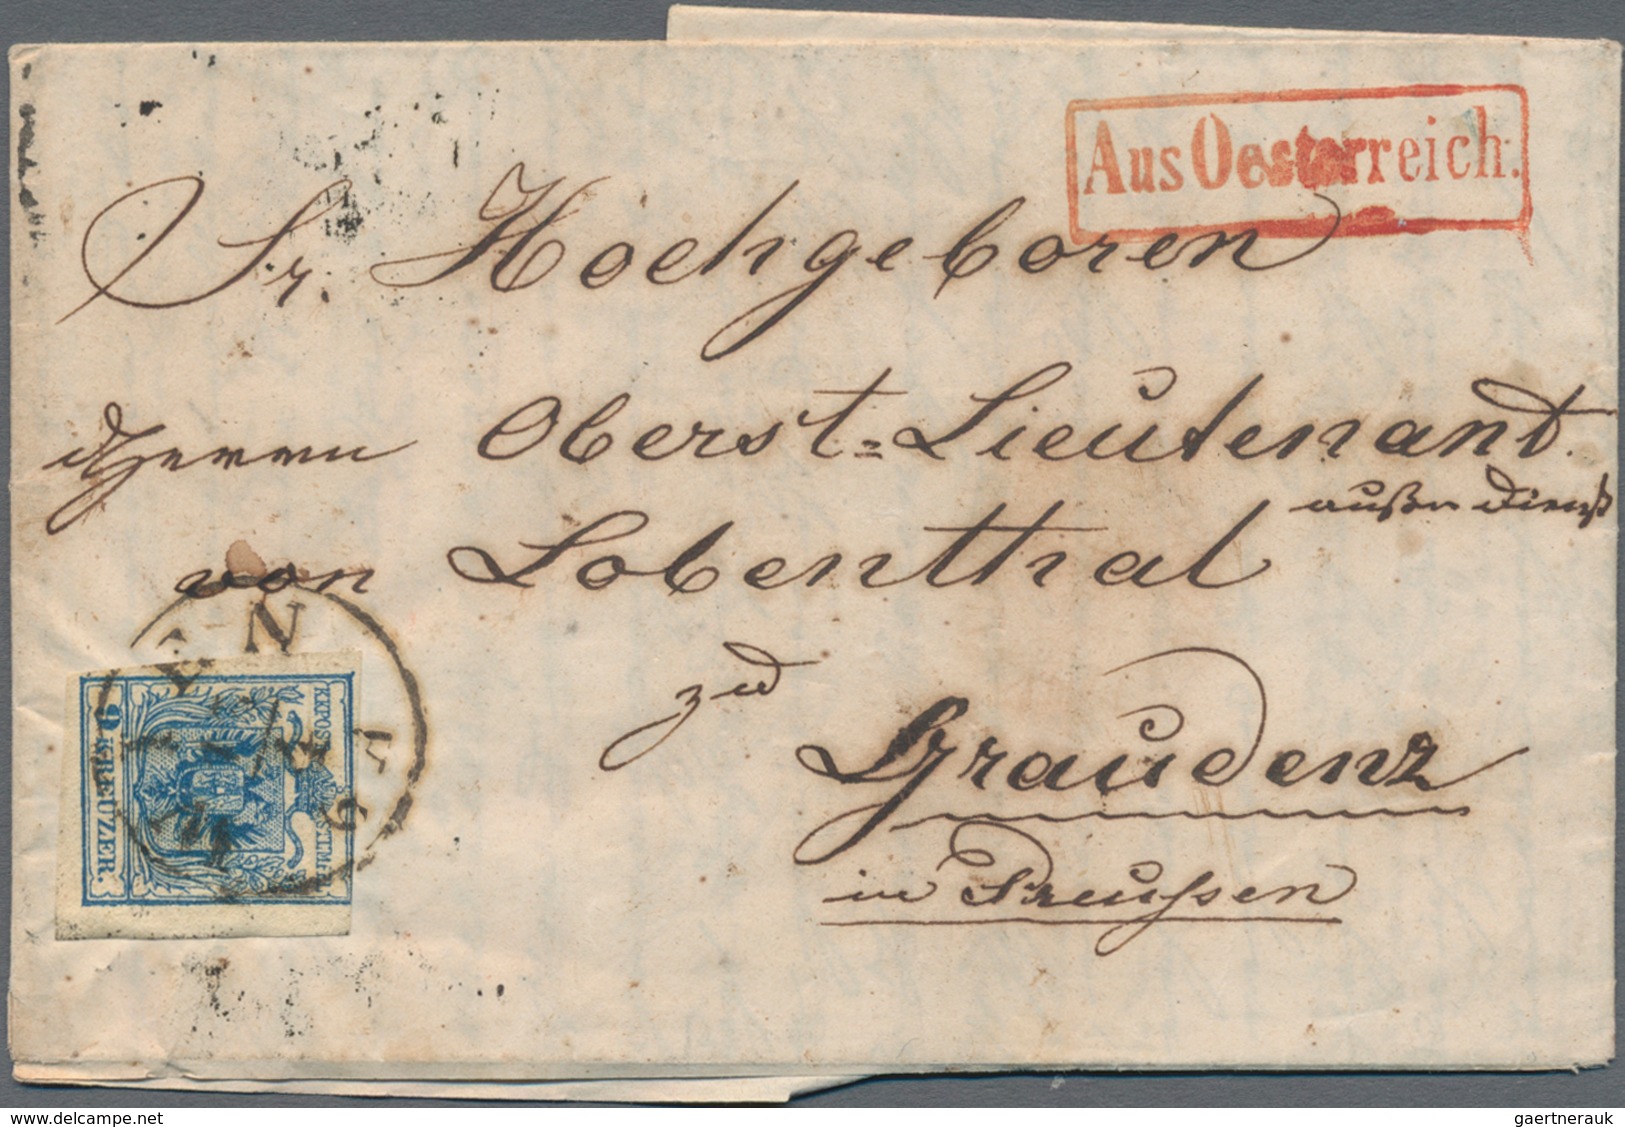 Aus Oesterreich.
Sr. Hochgeboren
Herrn Oberst=Lieutenant
außer Dienst
von Lobenthal
zu
Graudenz
in Preußen
WIEN
9 KREUZER.
KK POST-STEMPEL
delcampe.net
gaertnerauk